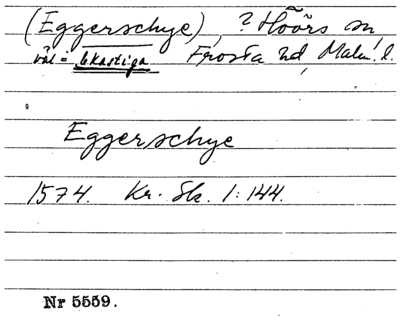 (Eggerschye), ? Höörs sn
väl = Ekastiga Frosta hd, Malm. l.
Eggerschye
1574. Kr. Sk. 1:144.
Nr 5559.